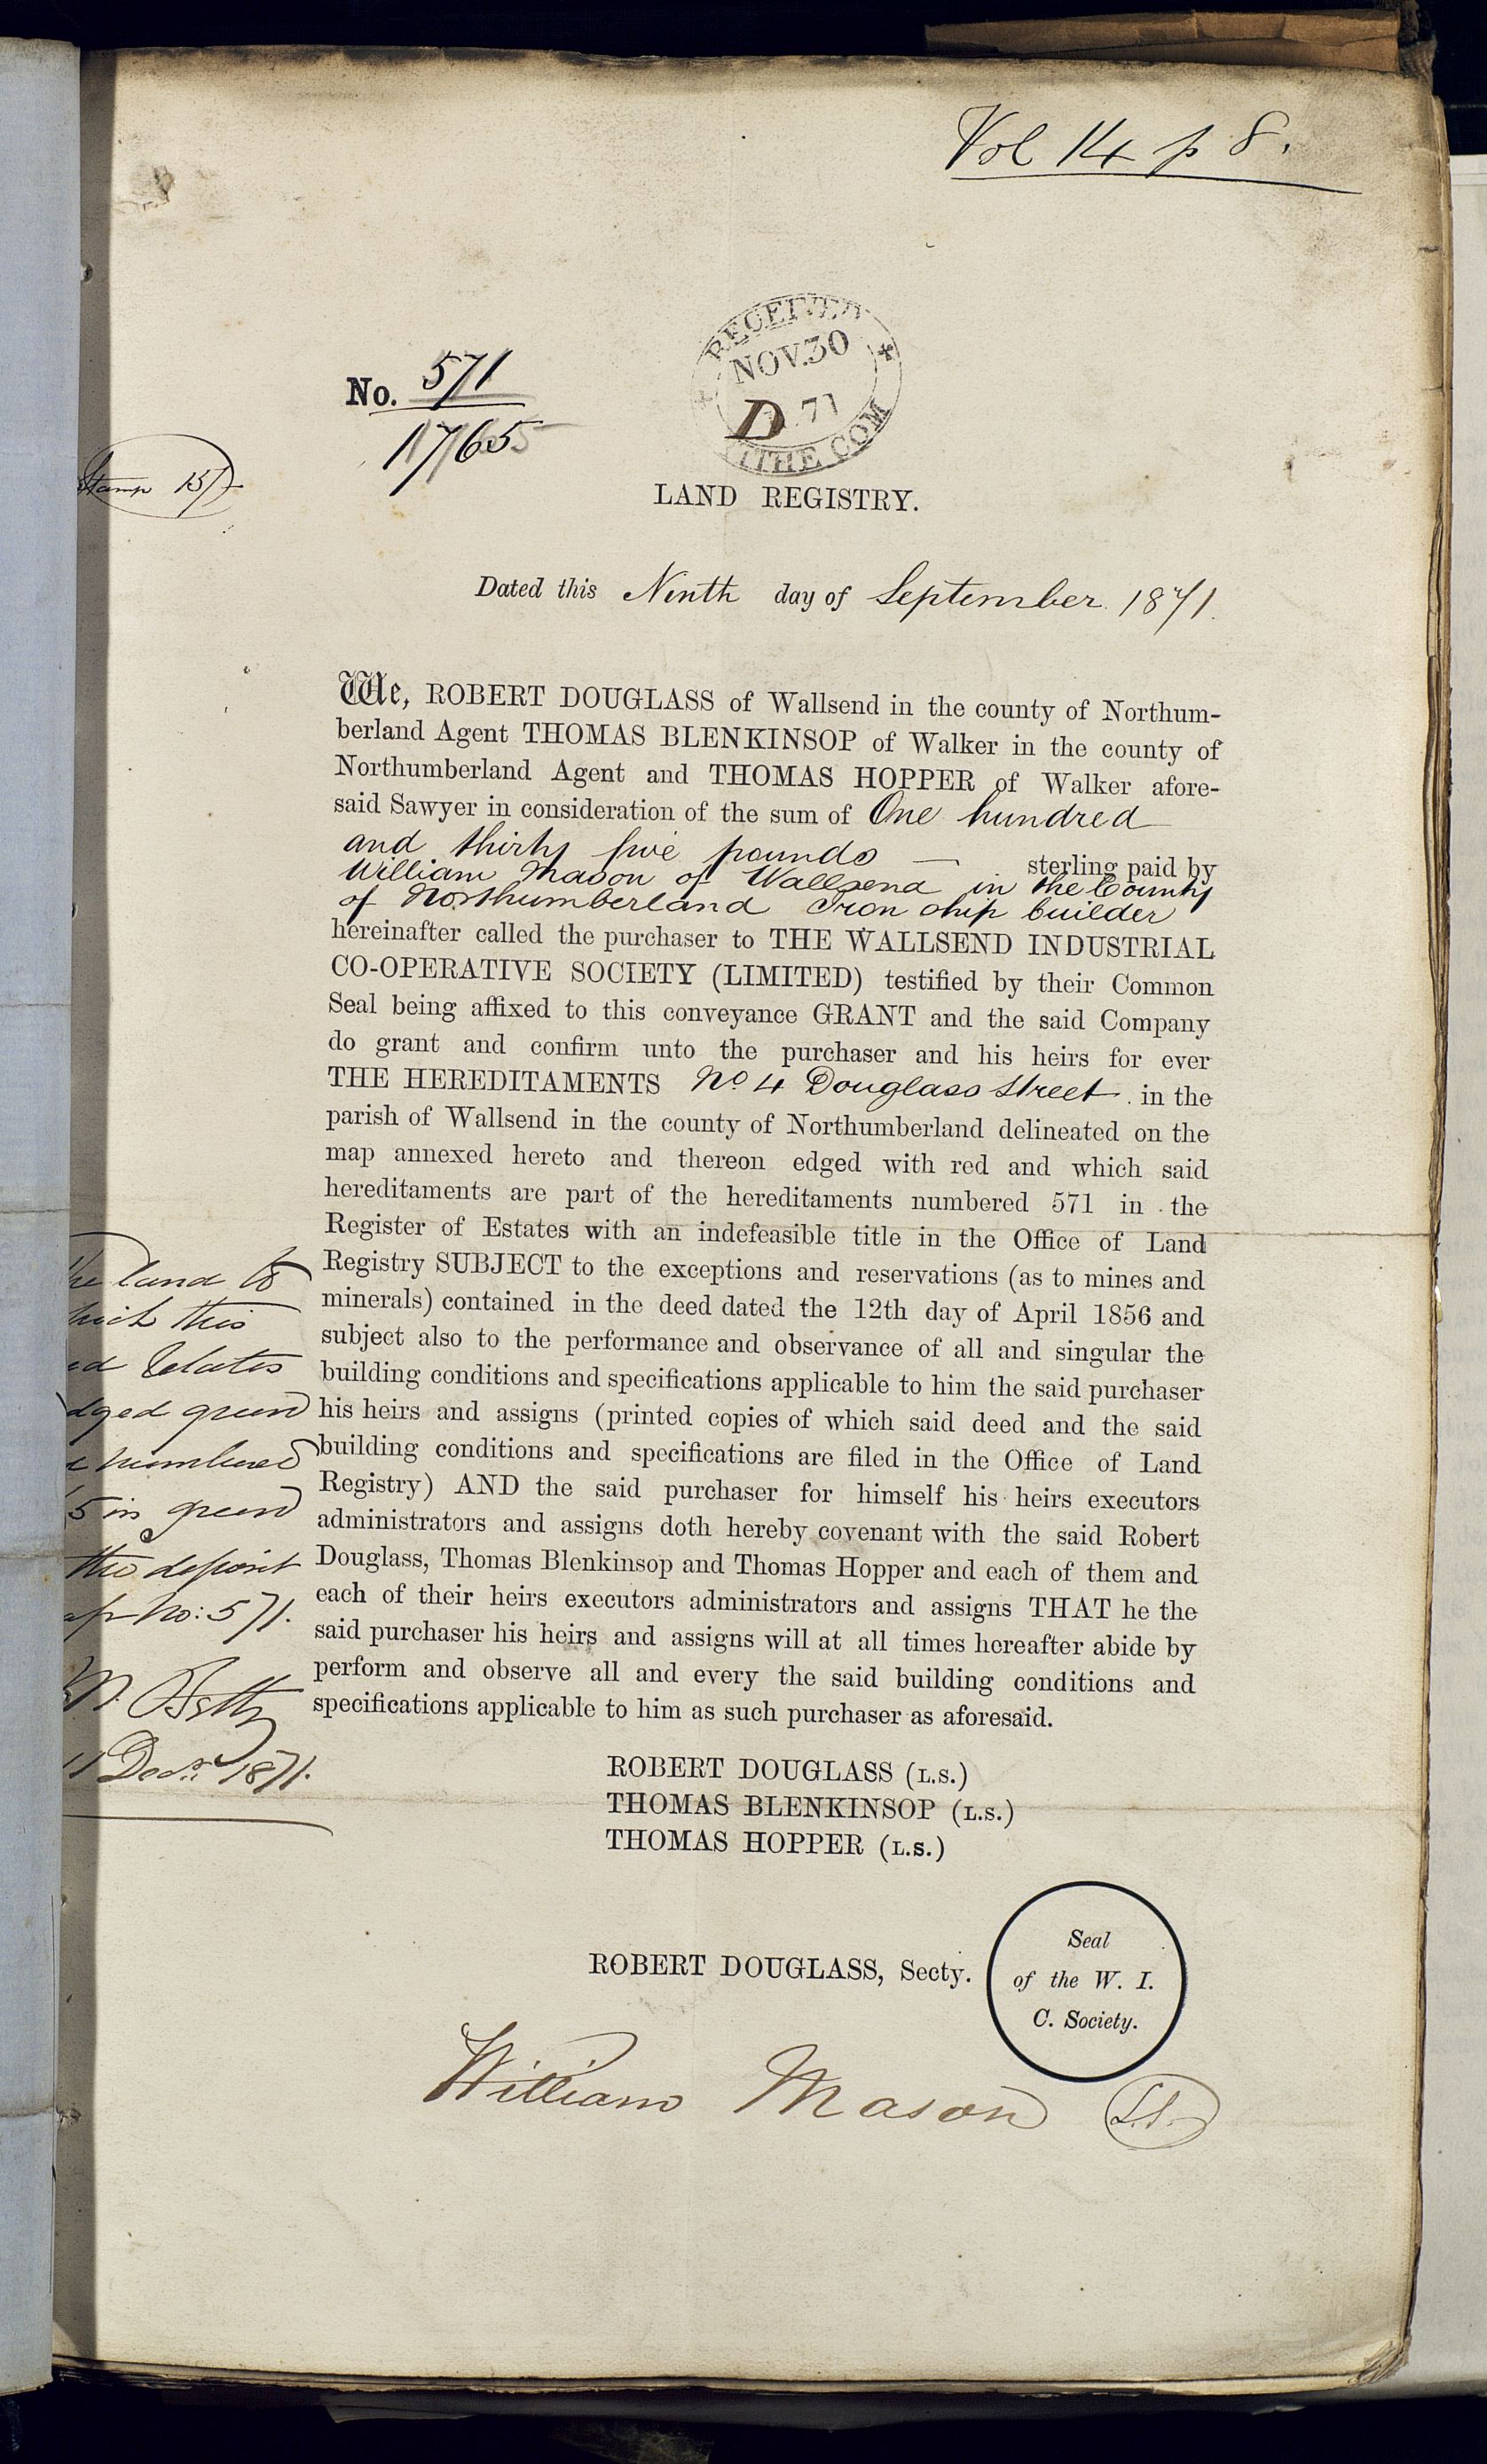 Vol 14 p 8.
RECEIVED
NOV. 30
D 71
TITHE COM
No. 571
17655
Stamp 15/-
LAND REGISTRY.
Dated this Ninth day of September 1871.
We, ROBERT DOUGLASS of Wallsend in the county of Northum-
berland Agent THOMAS BLENKINSOP of Walker in the county of
Northumberland Agent and THOMAS HOPPER of Walker afore-
said Sawyer in consideration of the sum of One hundred
and thirty five pounds — sterling paid by
William Mason of Wallsend in the County
of Northumberland Iron ship builder
hereinafter called the purchaser to THE WALLSEND INDUSTRIAL
CO-OPERATIVE SOCIETY (LIMITED) testified by their Common
Seal being affixed to this conveyance GRANT and the said Company
do grant and confirm unto the purchaser and his heirs for ever
THE HEREDITAMENTS No 4 Douglass Street. in the
parish of Wallsend in the county of Northumberland delineated on the
map annexed hereto and thereon edged with red and which said
hereditaments are part of the hereditaments numbered 571 in the
Register of Estates with an indefeasible title in the Office of Land
Registry SUBJECT to the exceptions and reservations (as to mines and
minerals) contained in the deed dated the 12th day of April 1856 and
subject also to the performance and observance of all and singular the
building conditions and specifications applicable to him the said purchaser
his heirs and assigns (printed copies of which said deed and the said
building conditions and specifications are filed in the Office of Land
Registry) AND the said purchaser for himself his heirs executors
administrators and assigns doth hereby covenant with the said Robert
Douglass, Thomas Blenkinsop and Thomas Hopper and each of them and
each of their heirs executors administrators and assigns THAT he the
said purchaser his heirs and assigns will at all times hereafter abide by
perform and observe all and every the said building conditions and
specifications applicable to him as such purchaser as aforesaid.
he land to
hich this
ed relates
dged green
numbered
5 in green
the deposit
ap No: 571.
11 Decr. 1871.
ROBERT DOUGLASS (L.S.)
THOMAS BLENKINSOP (L.S.)
THOMAS HOPPER (L.S.)
ROBERT DOUGLASS, Secty.
Seal
of the W. I.
C. Society.
William Mason L.S.